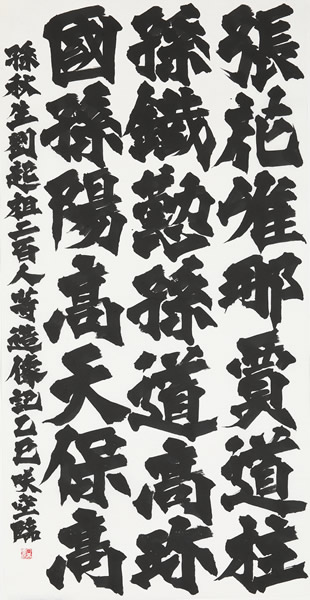 張龍惟那賈道柱
孫鐵懃孫道高珎
國孫陽高天保高
孫秋生劉起祖二百人等造像記乙巳 臨